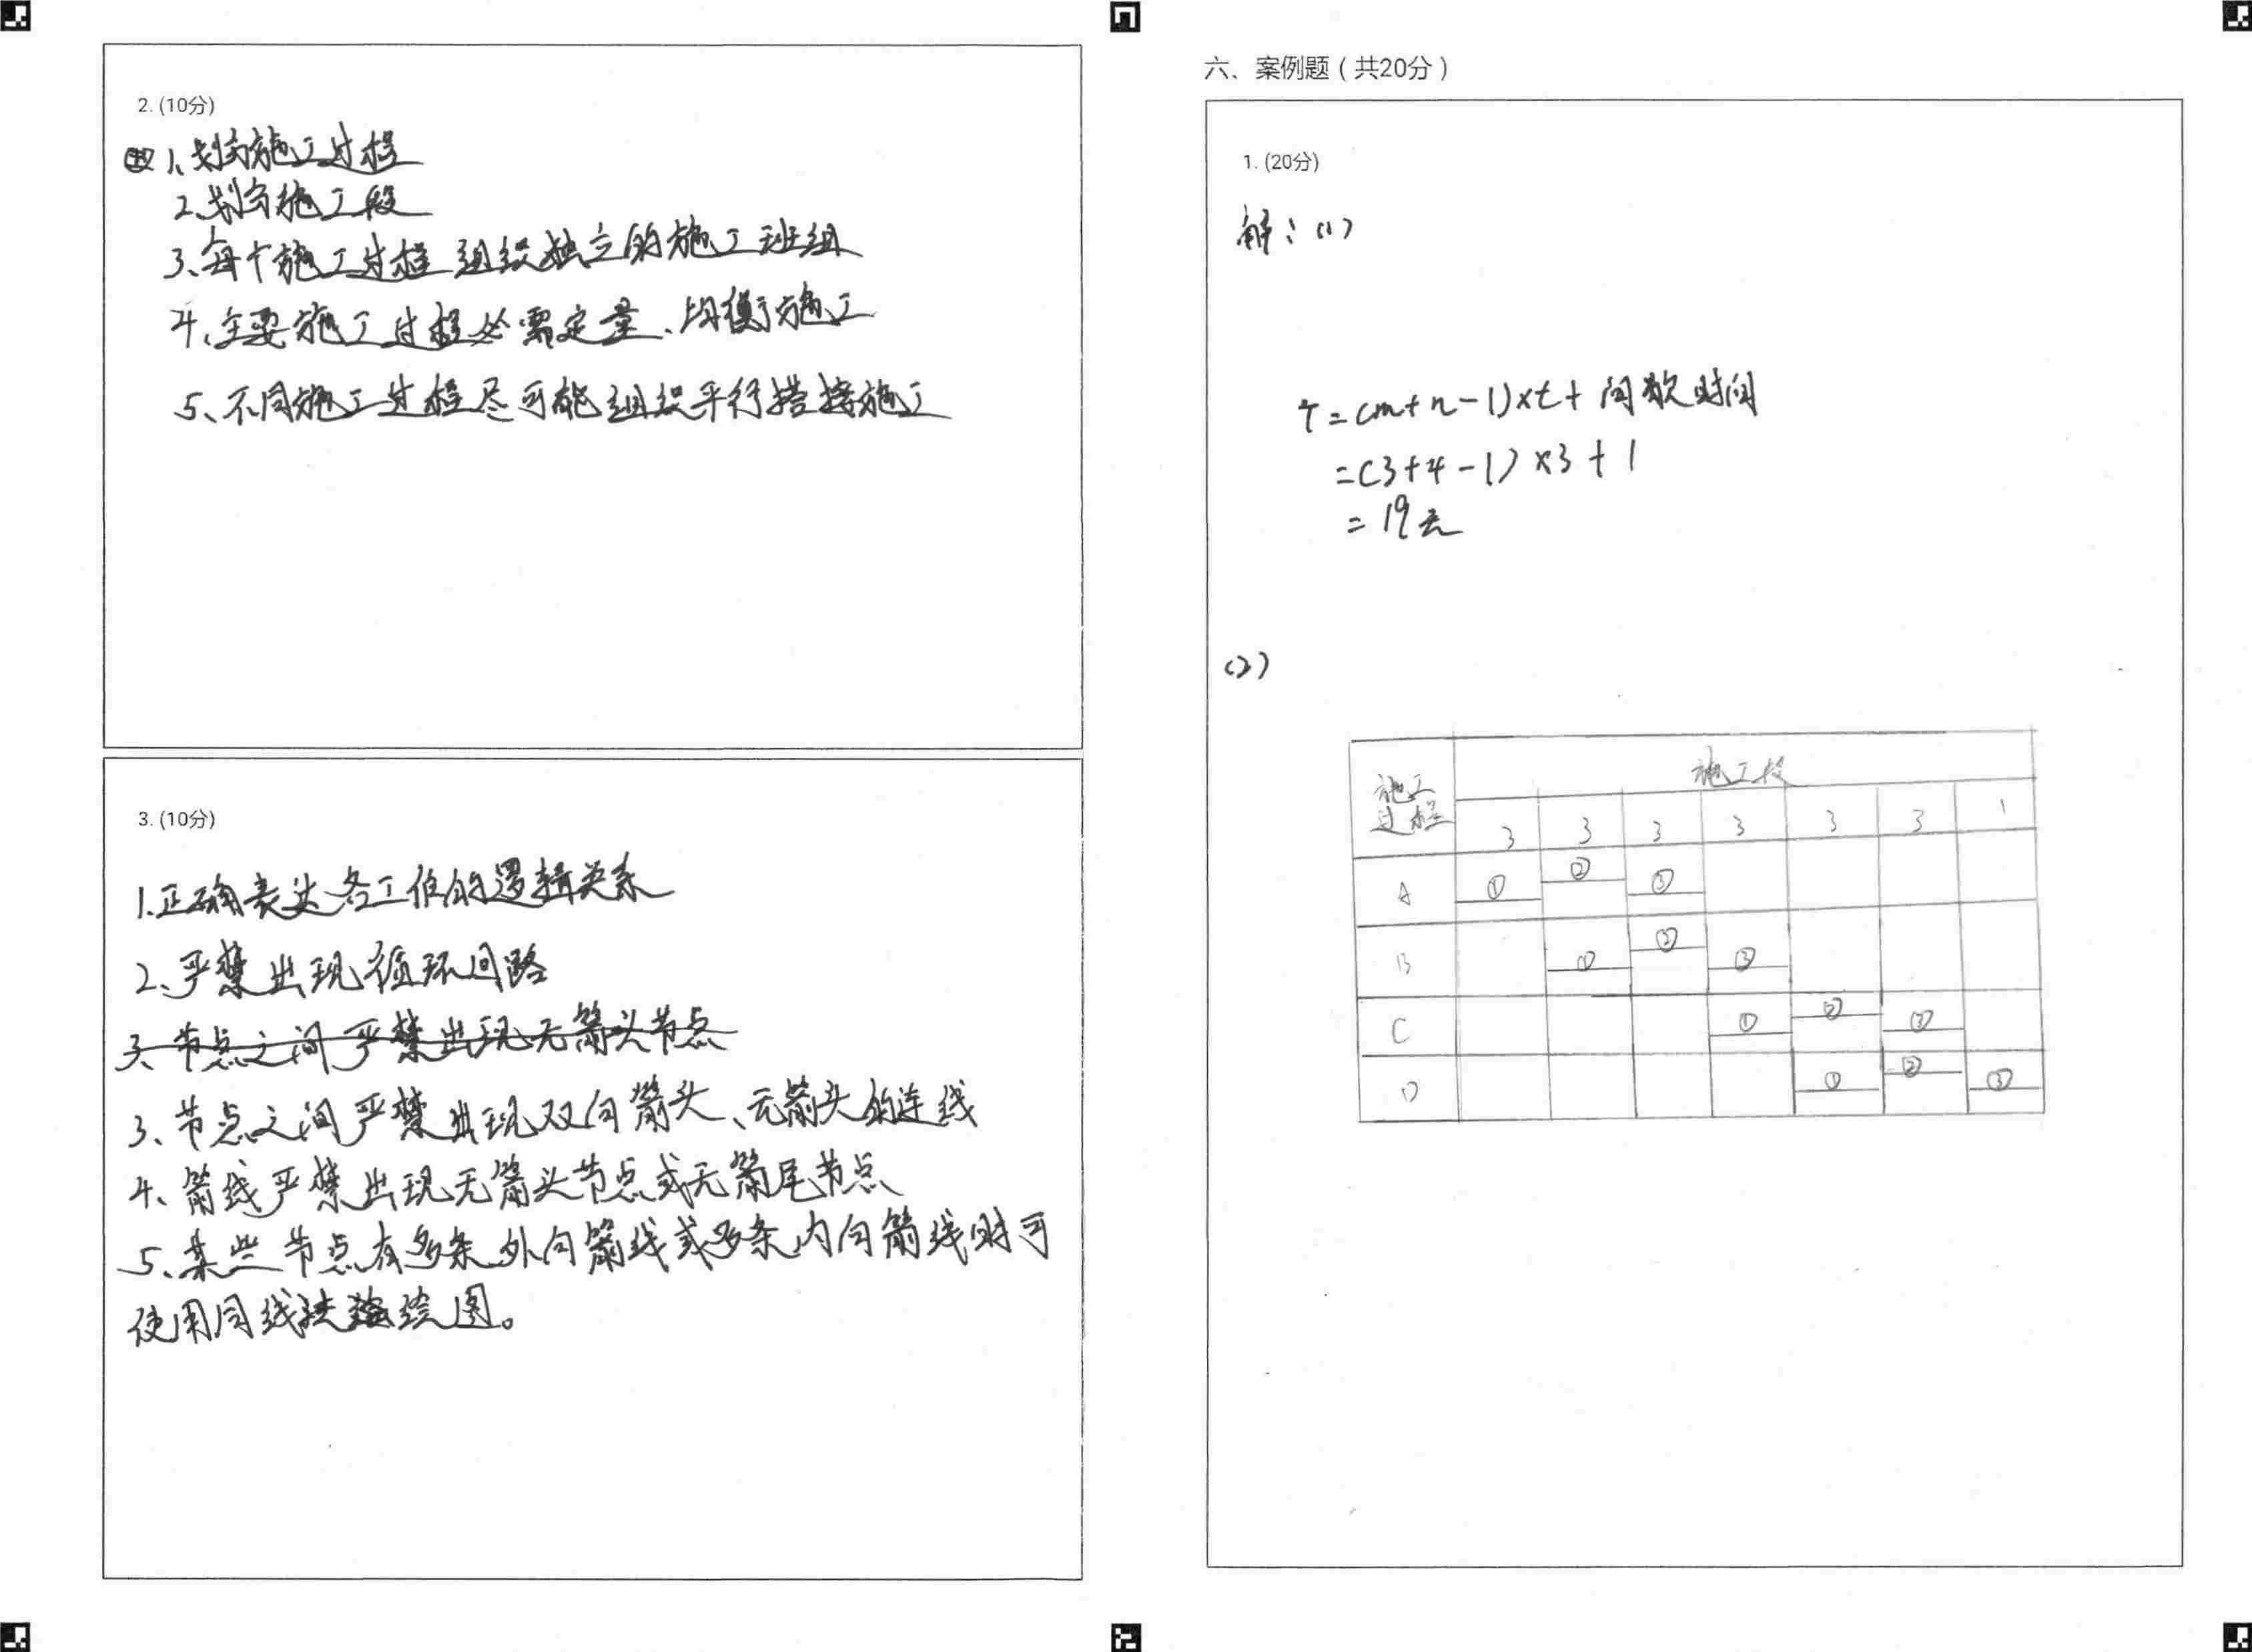 2. (10分)
1、划分施工过程
2、划分施工段
3、每个施工过程组织独立的施工班组
4、主要施工过程必需定量、均衡施工
5、不同施工过程尽可能组织平行搭接施工
3. (10分)
1.正确表达各工作的逻辑关系
2、严禁出现循环回路
3、节点之间严禁出现无箭头节点
3、节点之间严禁出现双向箭头、无箭头的连线
4、箭线严禁出现无箭头节点或无箭尾节点
5、某些节点有多条外向箭线或多条内向箭线时可
使用同线法绘图。
六、案例题（共20分）
1. (20分)
解：(1)
T=(m+n-1)×t+间歇时间
=(3+4-1)×3+1
=19天
(2)
施工过程 施工段
3 3 3 3 3 3 1
A ① ② ③
B ① ② ③
C ① ② ③
D ① ② ③